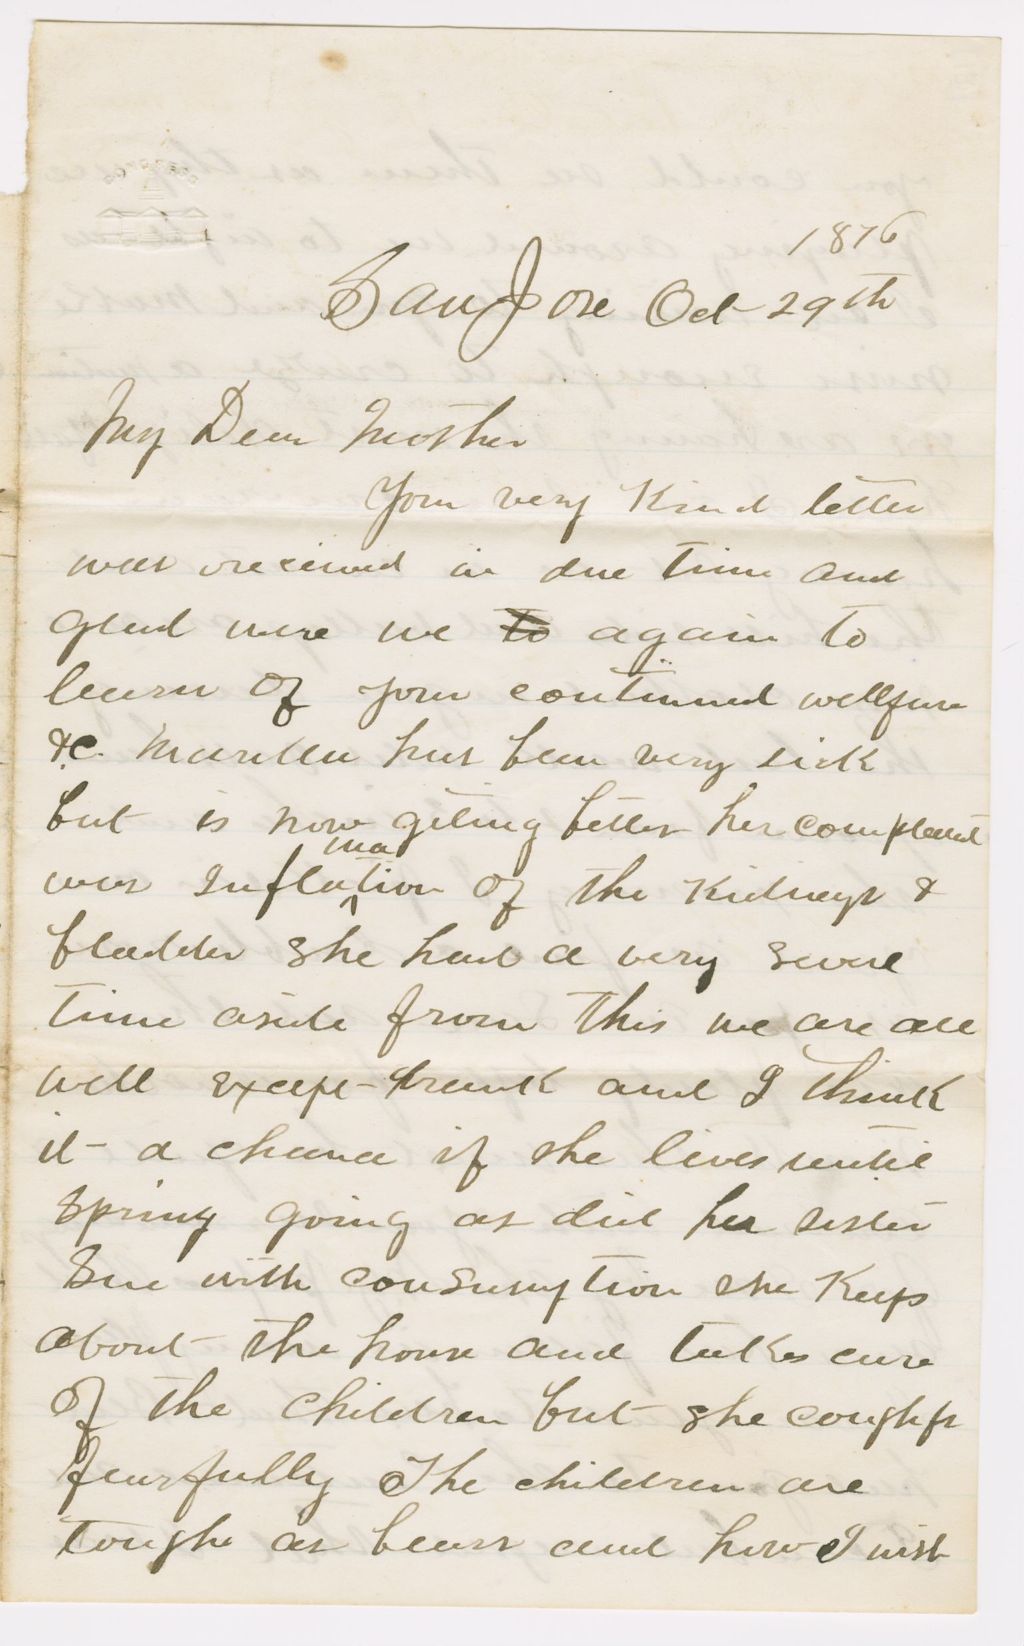 1876
San Jose Oct 29th
My Dear Mother
Your very Kind letter
was received in due time and
glad were we to again to
learn of your continued wellfare
&c. Marilla has been very sick
but is now giting better her complaint
was Inflamation of the Kidneys &
bladder She had a very severe
time aside from this we are all
well except Frank and I think
it a chance if she lives until
Spring going as did her sister
Sue with consumption she Keeps
about the house and takes care
of the children but she coughs
fearfully The children are
toughe as bears and how I wish